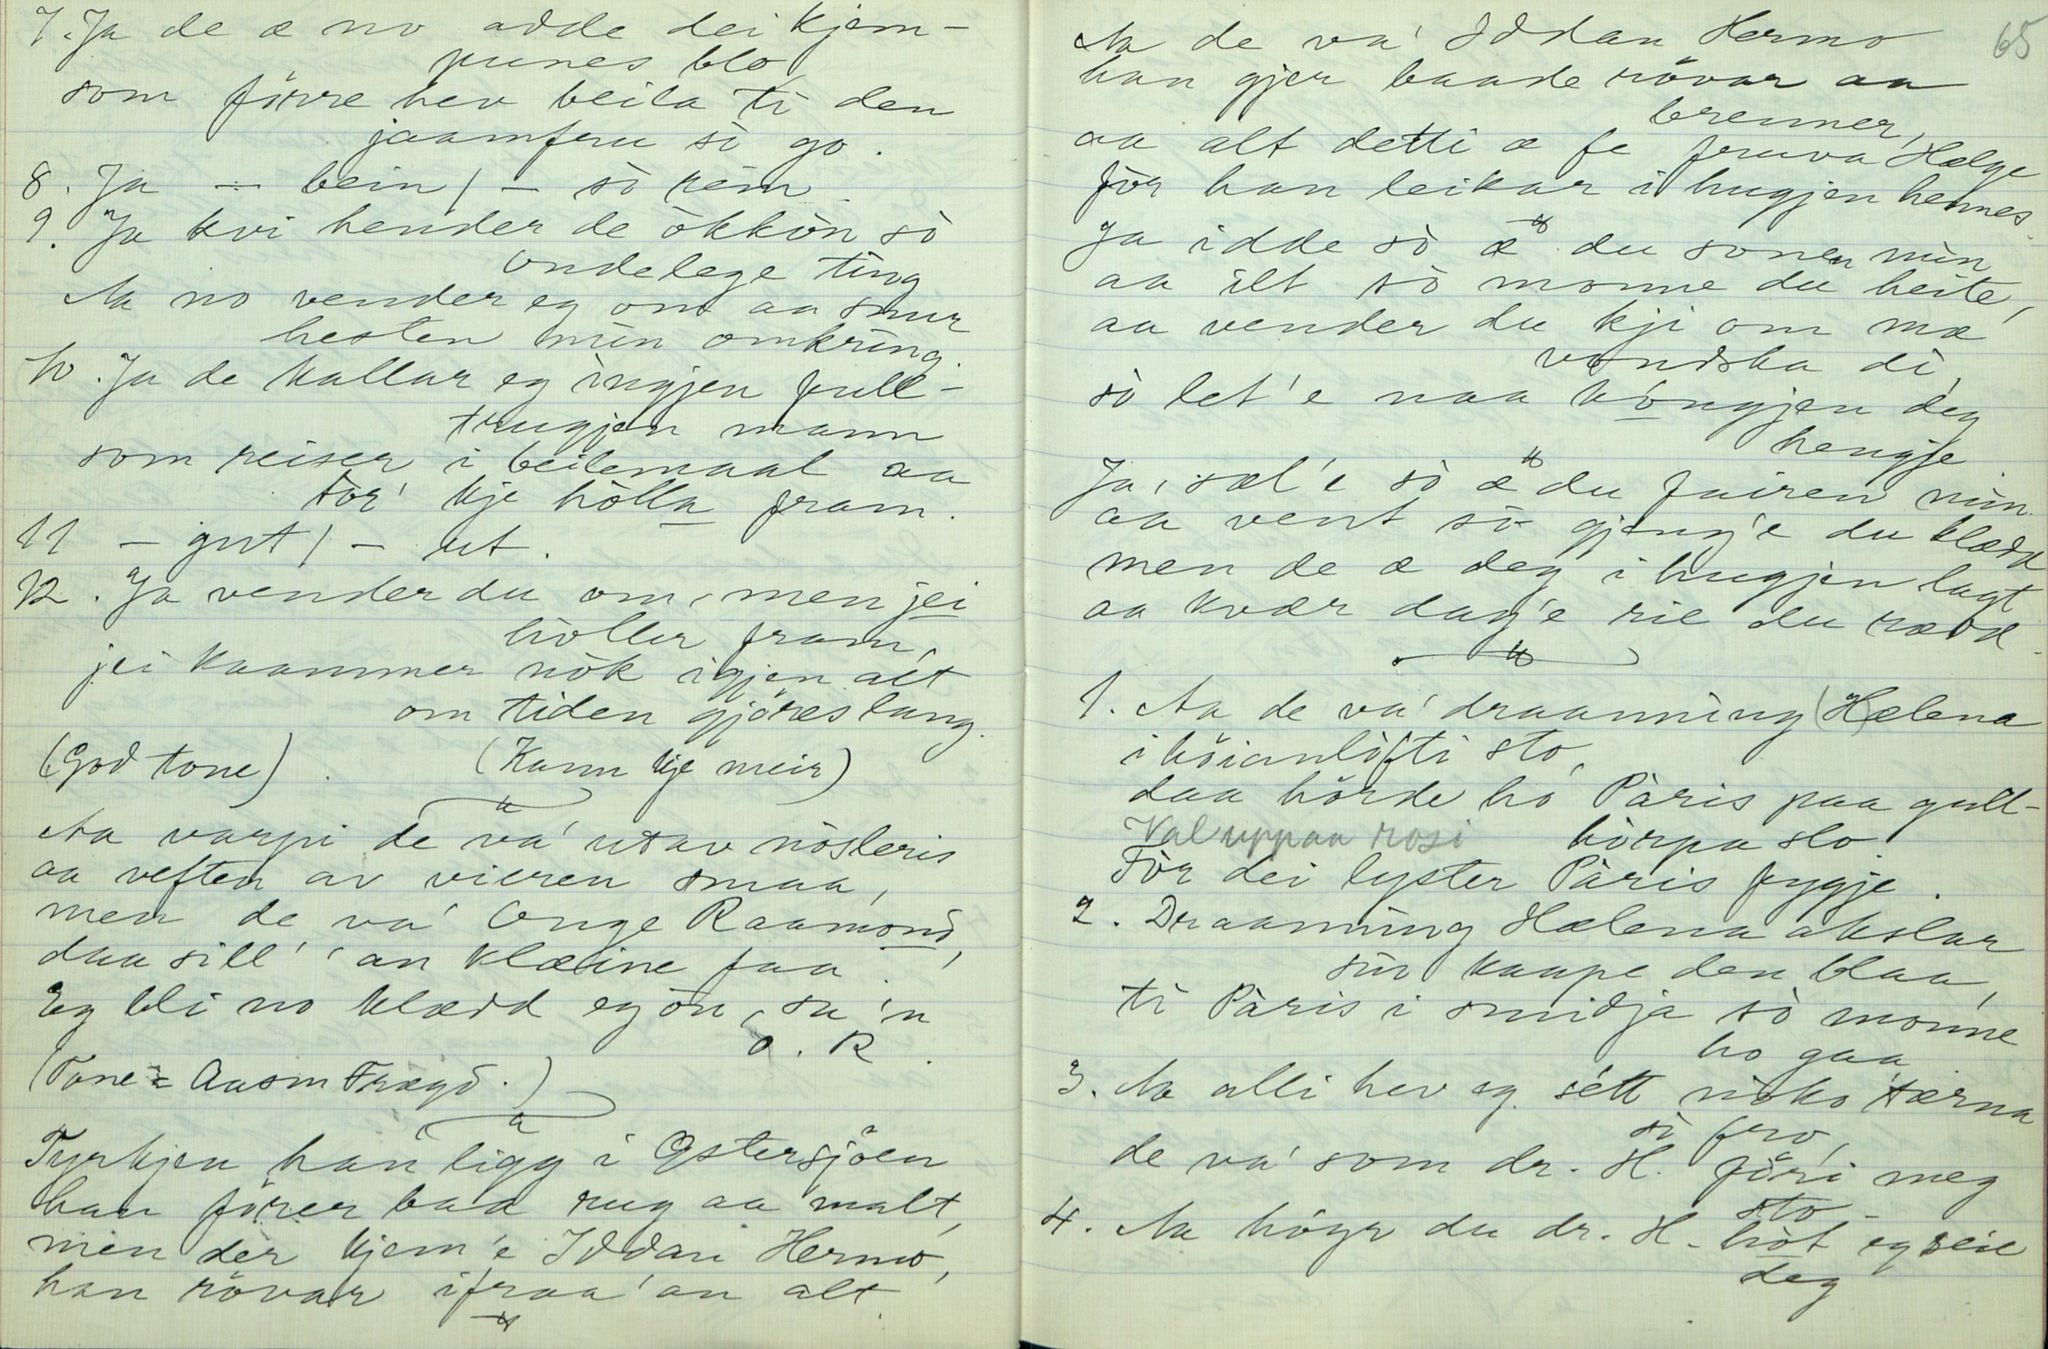 7. Ja de æ no adde dei kjem-
punes blo,
som fórre hev beila ti den
jaamfru sò go.
8. Ja — bein / — sò rein
9. Ja kvi hender de òkkòn sò
ondelege ting
Aa no vender eg om aa snur
hesten min omkring.
10. Ja de kallar eg ingjen full-
trugjen mann
som reiser i beilemaal aa
tòr' kje hòlla fram.
11 — gut / — ut.
12. Ja vender du om, men jei
hòller fram,
jei kaammer nòk igjen alt
om tiden gjöres lang.
(God tone). (Kann kje meir)
Aa varpi de va' utav nósleris
aa veften av vieren smaa,
men de va' Onge Raamond,
daa sill' 'an klæine faa.
Eg bli no klædd egòn, sa 'n
O. R.
(Tone = Aasm Frægd.)
Tyrkjen han ligg i Østersjöen
han fører baa rug aa malt,
men der kjem'e Iddan Hermo,
han rövar ifraa 'an alt
65
Aa de va' Iddan Hermo
han gjer baade rövar aa
brenner,
aa alt detti æ fe fruva Hælge
fòr han leikar i hugjen hennes.
Ja idde sò æ du sonen min
aa ilt sò monne du heite,
aa vender du kji om mæ
vondska di,
sò let'e naa kóngjen deg
hengje
Ja, sæl'e sò æ du fairen min
aa vent sò gjeng'e du klædd
men de æ deg i hugjen lagt
aa kvær dag'e rie du rædd.
1. Aa de va' draanning (H)ælena
i höianlòfti sto,
daa hörde ho Pàris paa gull-
hòrpa slo
Val uppaa rosi
Fòr dei lyster Pàris fygje.
2. Draanning Hælena akslar
sin kaape den blaa,
ti Pàris i smidja sò monne
ho gaa
3. Aa alli hev eg sétt nòko tærna
sò fro,
de va' som dr. H. fòri meg
sto
4. Aa höyr du dr. H. hòt eg seie
deg